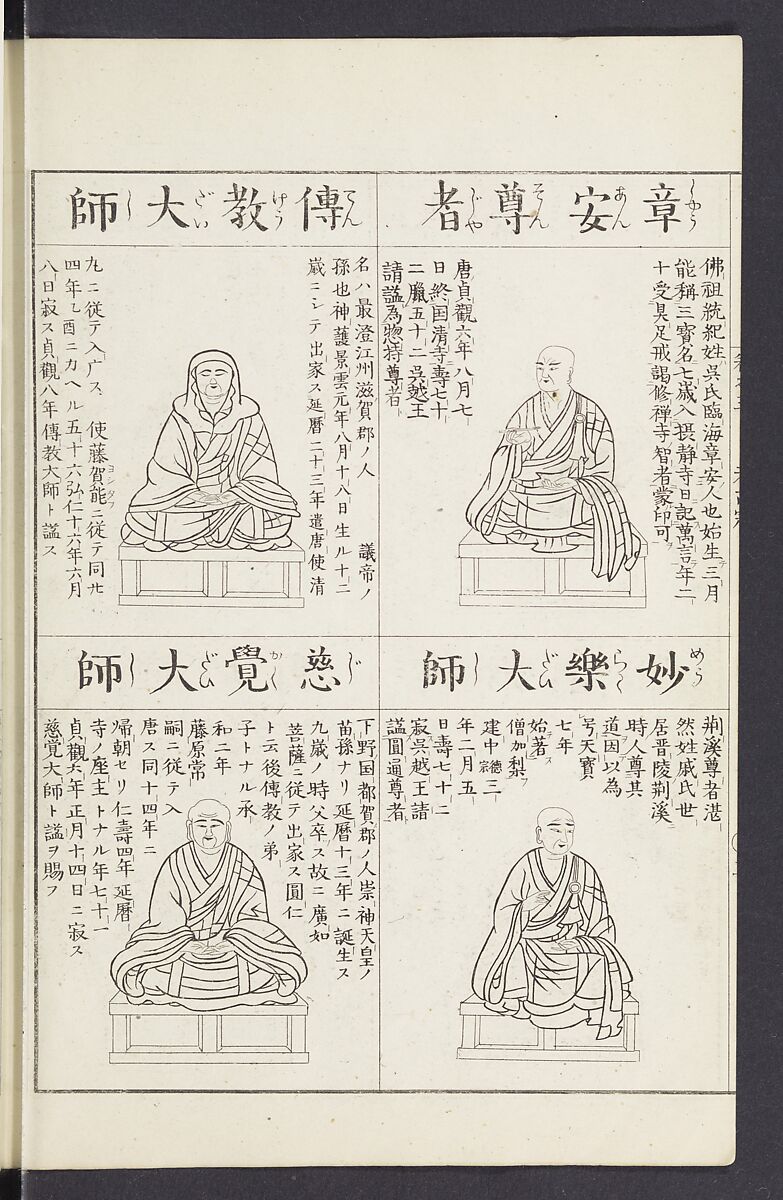 章安尊者
しやうあんそんじや
佛祖統紀姓吳氏臨海章安人也始生三月
能稱三寶名七歲入摂静寺日記萬言年二
十受具足戒謁修禅寺智者蒙印可
唐貞觀六年八月七
日終国清寺壽七十
二臘五十二吳越王
請謚為惣持尊者
傳教大師
てんけうだいし
名ハ最澄江州滋賀郡ノ人 議帝ノ
孫也神護景雲元年八月十八日生ル十二
歳ニシテ出家ス延曆二十三年遣唐使清
使藤賀能ニ従テ同廿
ヨシタフ
九ニ従テ入广ス
四年乙酉ニカヘル五十六弘仁十六年六月
八日寂ス貞觀八年傳教大師ト謚ス
妙樂大師
めうらくだいし
荆溪尊者湛
然姓戚氏世
居晋陵荆溪
時人尊其
道因以為
号天寶
七年
始著
僧加梨
建中德宗三
年二月五
日壽七十二
寂吳越王請
謚圓遍尊者
慈覺大師
じかくだいし
下野国都賀郡ノ人崇神天皇ノ
苗孫ナリ延曆十三年ニ誕生ス
九歲ノ時父卒ス故ニ廣如
菩薩ニ従テ出家ス圓仁
ト云後傳教ノ弟
子トナル承
和二年
藤原常
嗣ニ従テ入
唐ス同十四年ニ
歸朝セリ仁壽四年延曆
寺ノ座主トナル年七十一
貞觀六年正月十四日ニ寂ス
慈覺大師ト謚ヲ賜フ